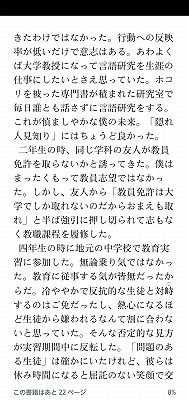 きたわけではなかった。行動への反映
率が低いだけで意志はある。あわよく
ば大学教授になって言語研究を生涯の
仕事にしたいとさえ思っていた。ホコ
リを被った専門書が積まれた研究室で
毎日誰とも話さずに言語研究をする。
これが慎ましやかな僕の未来。「隠れ
人見知り」にはちょうど良かった。
二年生の時、同じ学科の友人が教員
免許を取らないかと誘ってきた。僕は
まったくもって教員志望ではなかっ
た。しかし、友人から「教員免許は大
学でしか取れないのだからおまえも取
れ」と半ば強引に押し切られて志もな
く教職課程を履修した。
四年生の時に地元の中学校で教育実
習に参加した。無論乗り気ではなかっ
た。教育に従事する気が皆無だったか
らだ。冷ややかで反抗的な生徒と対峙
するのはご免だったし、熱心になるほ
ど生徒から嫌われるなんて割に合わな
いと思っていた。そんな否定的な見方
が実習期間中に反転した。「問題のあ
る生徒」は確かにいたけれど、彼らは
休み時間になると屈託のない笑顔で交
この書籍はあと 22 ページ
8%